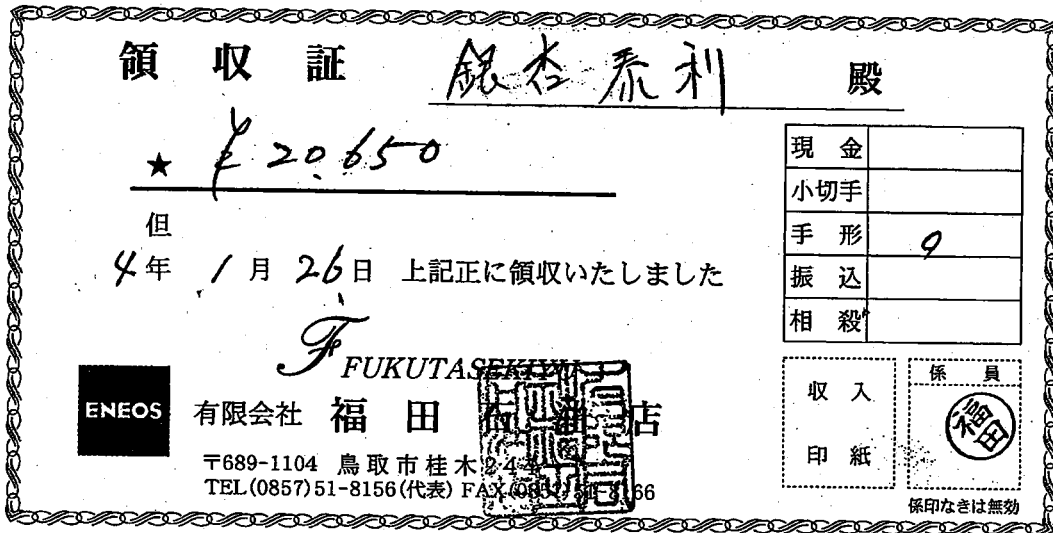 領収証 銀杏 泰利 殿
★ ¥20,650
但
4年 1月 26日 上記正に領収いたしました
現金
小切手
手形 9
振込
相殺
F FUKUTASEKIYU
ENEOS 有限会社 福田石油店
〒689-1104 鳥取市桂木244
TEL(0857)51-8156(代表) FAX(0857)51-8166
収入
印紙
係員
福田
係印なきは無効